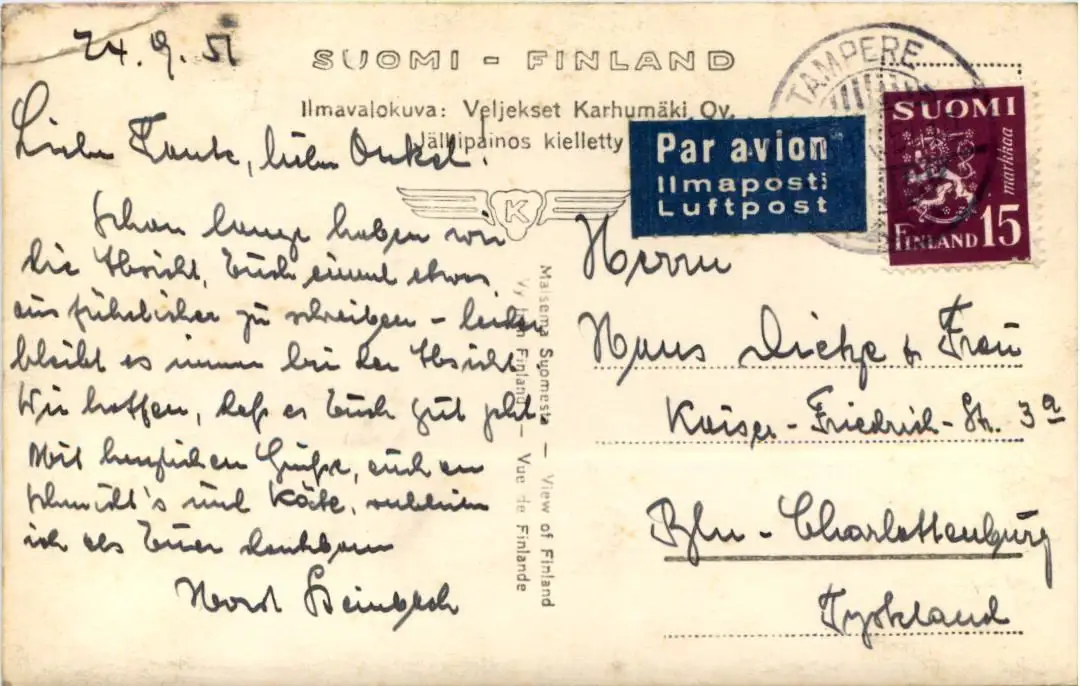 24.9.51
SUOMI - FINLAND
Ilmavalokuva: Veljekset Karhumäki Oy.
Jälkipainos kielletty
Liebe Tante, lieber Onkel.
Schon lange haben wir
die Absicht, Euch einmal etwas
ausführlicher zu schreiben - leider
bleibt es immer bei der Absicht
Wir hoffen, daß es Euch gut geht
Mit herzlichen Grüßen, auch an
Schmidt's und Käte, verbleibe
ich als Euer dankbarer
Horst
K
Maisema Suomesta — View of Finland
Vy från Finland — Vue de Finlande
TAMPERE
Par avion
Ilmaposti
Luftpost
SUOMI
markkaa
FINLAND 15
Herrn
Hans Dietze & Frau
Kaiser-Friedrich-Str. 3a
Bln-Charlottenburg
Tyskland